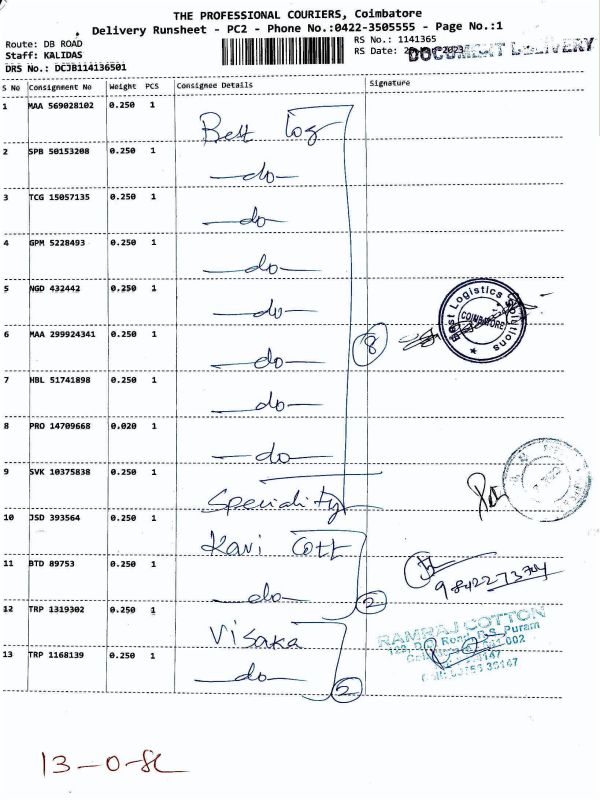 THE PROFESSIONAL COURIERS, Coimbatore
Delivery Runsheet - PC2 - Phone No.:0422-3505555 - Page No.:1
Route: DB ROAD
Staff: KALIDAS
DRS No.: DCJB114136501
RS No.: 1141365
RS Date: 2023
DOCUMENT DELIVERY
S No Consignment No Weight PCS Consignee Details Signature
1 MAA 569028102 0.250 1 Best log
2 SPB 50153208 0.250 1 —do—
3 TCG 15057135 0.250 1 —do—
4 GPM 5228493 0.250 1 —do—
5 NGD 432442 0.250 1 —do—
Best Logistics Solutions
COIMBATORE
6 MAA 299924341 0.250 1 —do— 8
7 HBL 51741898 0.250 1 —do—
8 PRO 14709668 0.020 1 —do—
9 SVK 10375838 0.250 1 Speciality
10 JSD 393564 0.250 1 Kavi Cott
11 BTD 89753 0.250 1 —do— 2
12 TRP 1319302 0.250 1 Visaka
RAMRAJ COTTON
R.S. Puram
13 TRP 1168139 0.250 1 —do— 2
13-0-8c